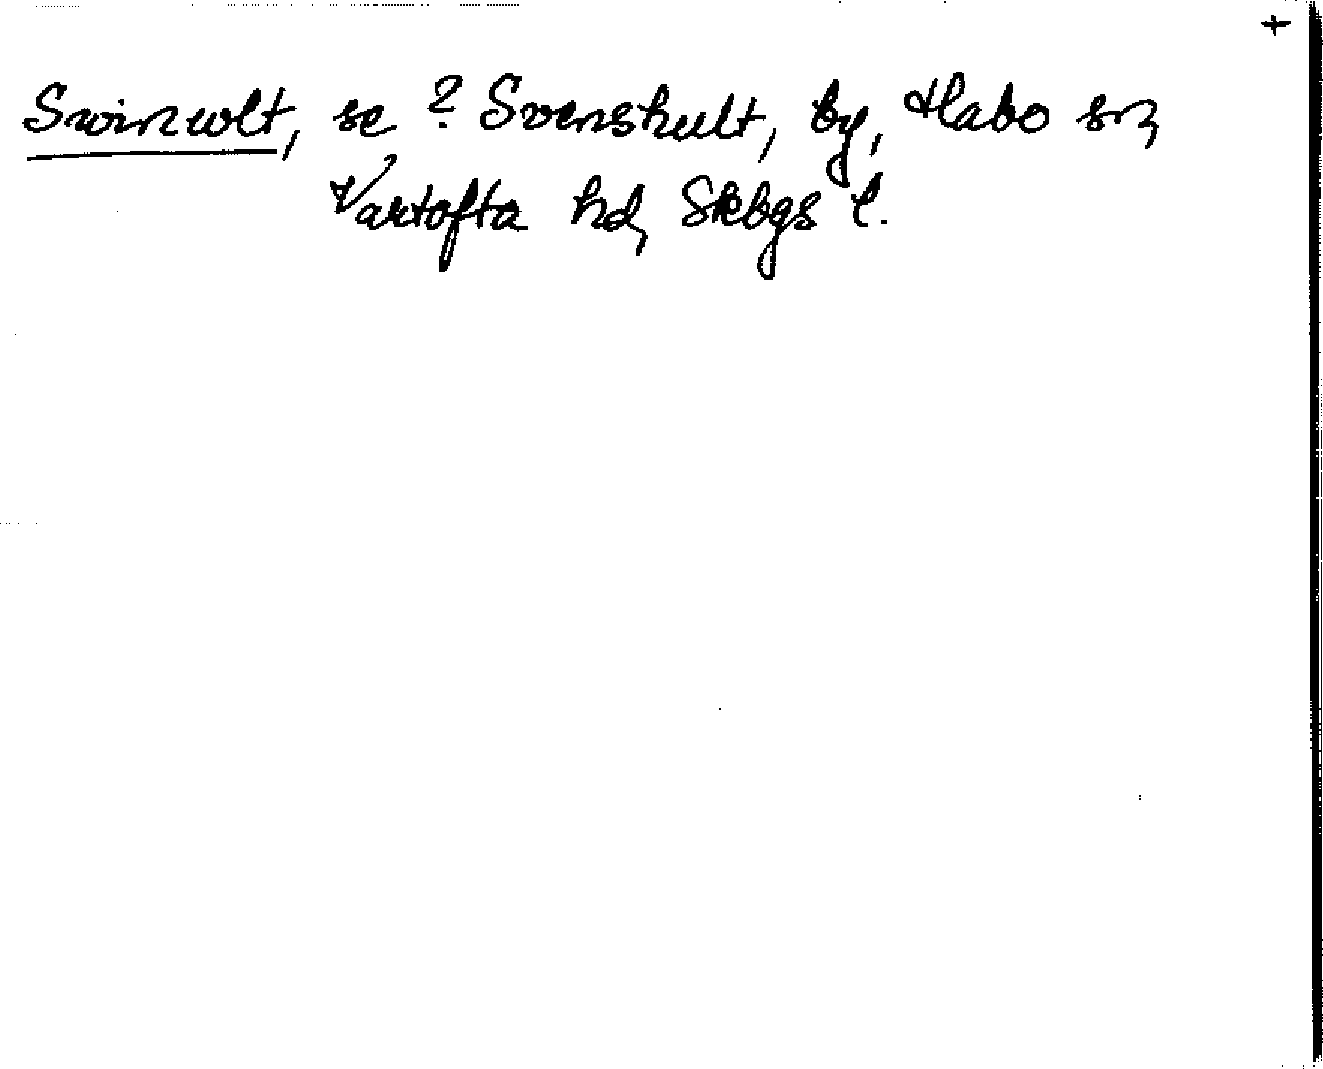 +
Swinwlt, se ? Svenshult, by, Habo sn,
Vartofta hd, Skbgs l.